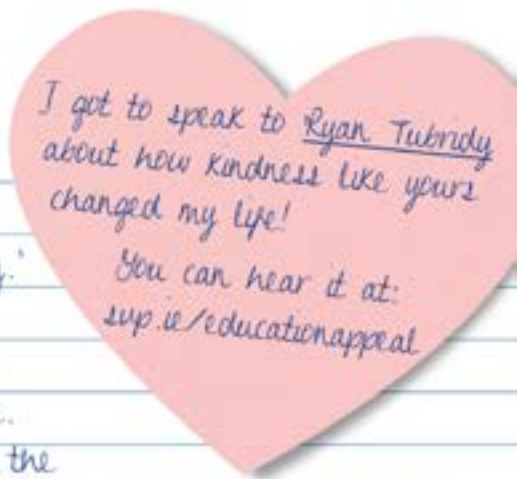 I got to speak to Ryan Tubridy
about how kindness like yours
changed my life!
You can hear it at:
svp.ie/educationappeal
the